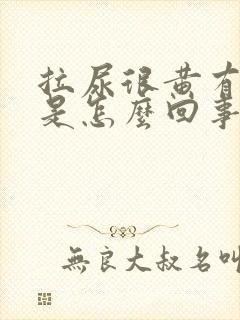 拉尿很黄有
是怎麼回事
無良大叔名叫